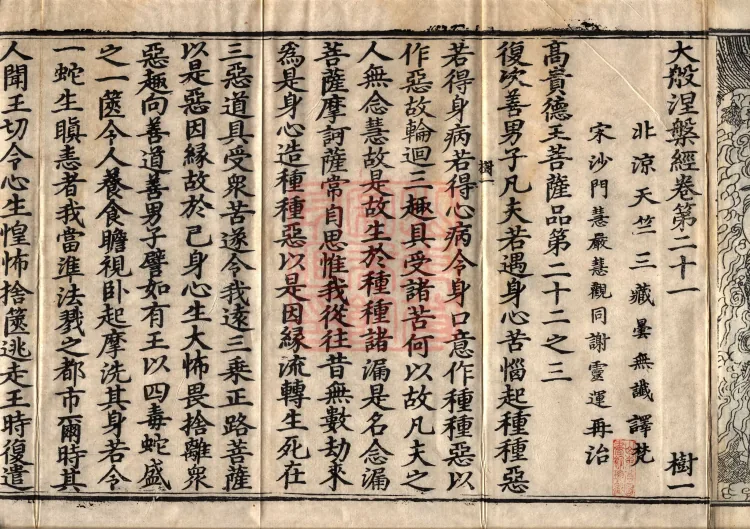 大般涅槃經卷第二十一 樹一
北涼天竺三藏曇無讖譯梵
宋沙門慧嚴慧觀同謝靈運再治
高貴德王菩薩品第二十二之三
復次善男子凡夫若遇身心苦惱起種種惡
樹一
若得身病若得心病令身口意作種種惡以
作惡故輪迴三趣具受諸苦何以故凡夫之
人無念慧故是故生於種種諸漏是名念漏
菩薩摩訶薩常自思惟我從往昔無數劫來
為是身心造種種惡以是因緣流轉生死在
三惡道具受眾苦遂令我遠三乘正路菩薩
以是惡因緣故於己身心生大怖畏捨離眾
惡趣向善道善男子譬如有王以四毒蛇盛
之一篋令人養食瞻視臥起摩洗其身若令
一蛇生瞋恚者我當準法戮之都市爾時其
人聞王切令心生惶怖捨篋逃走王時復遣